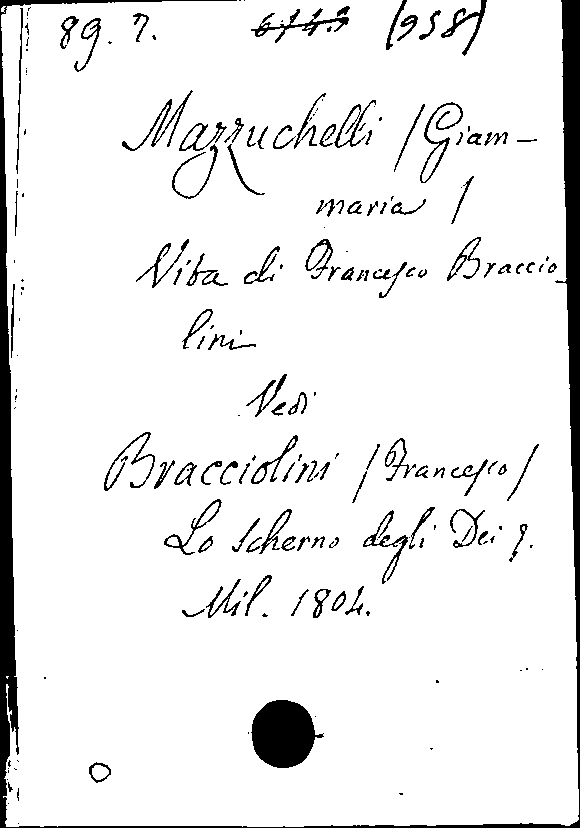 89. 7. (958)
Mazzuchelli / Giam-
maria /
Vita di Francesco Braccio-
lini
Vedi
Bracciolini / Francesco /
Lo scherno degli Dei
Mil. 1804.